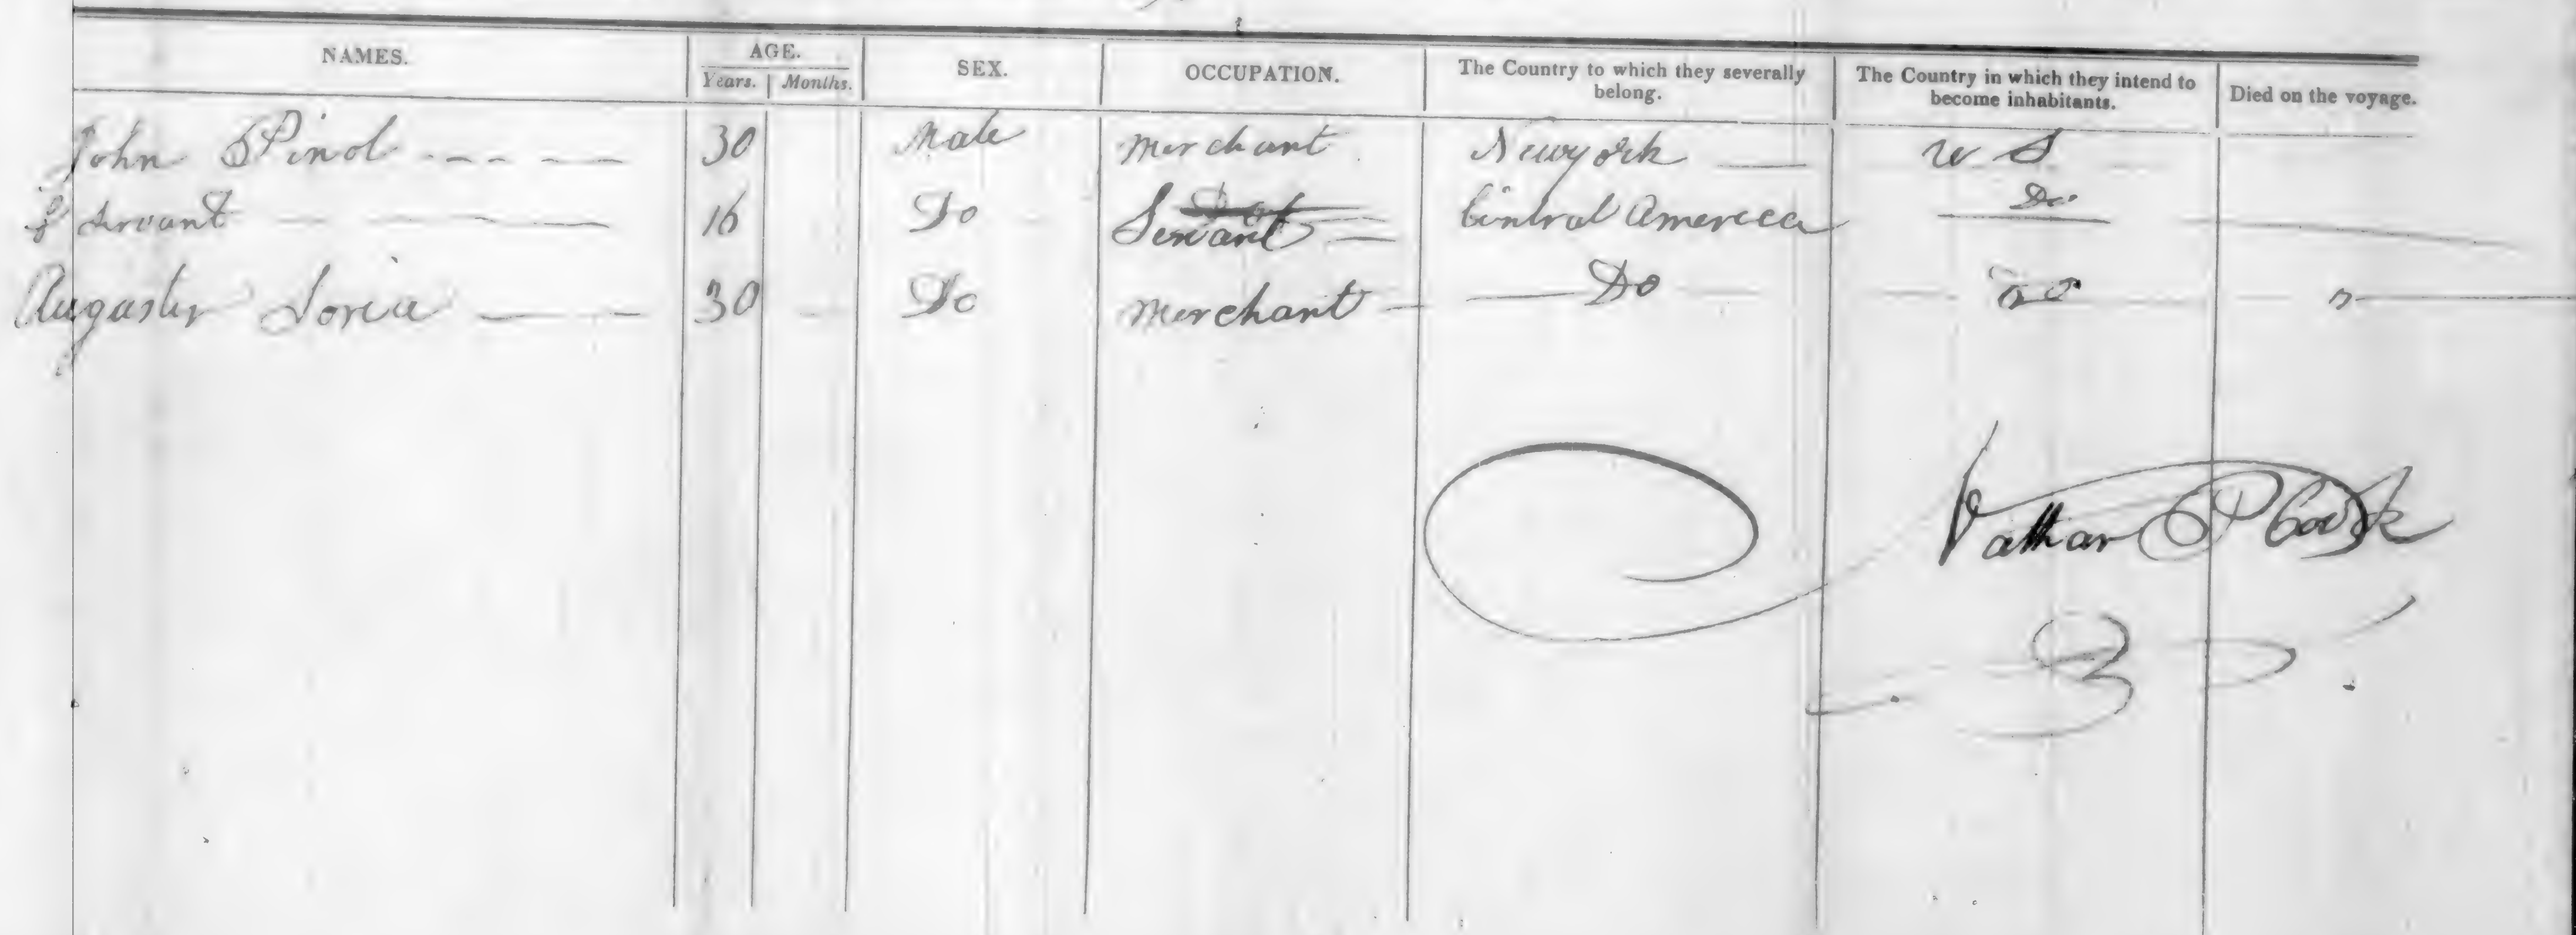 NAMES. AGE. SEX. OCCUPATION. The Country to which they severally belong. The Country in which they intend to become inhabitants. Died on the voyage.
Years. Months.
John Pinol 30 Male merchant Newyork U S
& Servant 16 Do Servant Central America Do
Do 30 Do merchant Do Do
Nathan P Cook